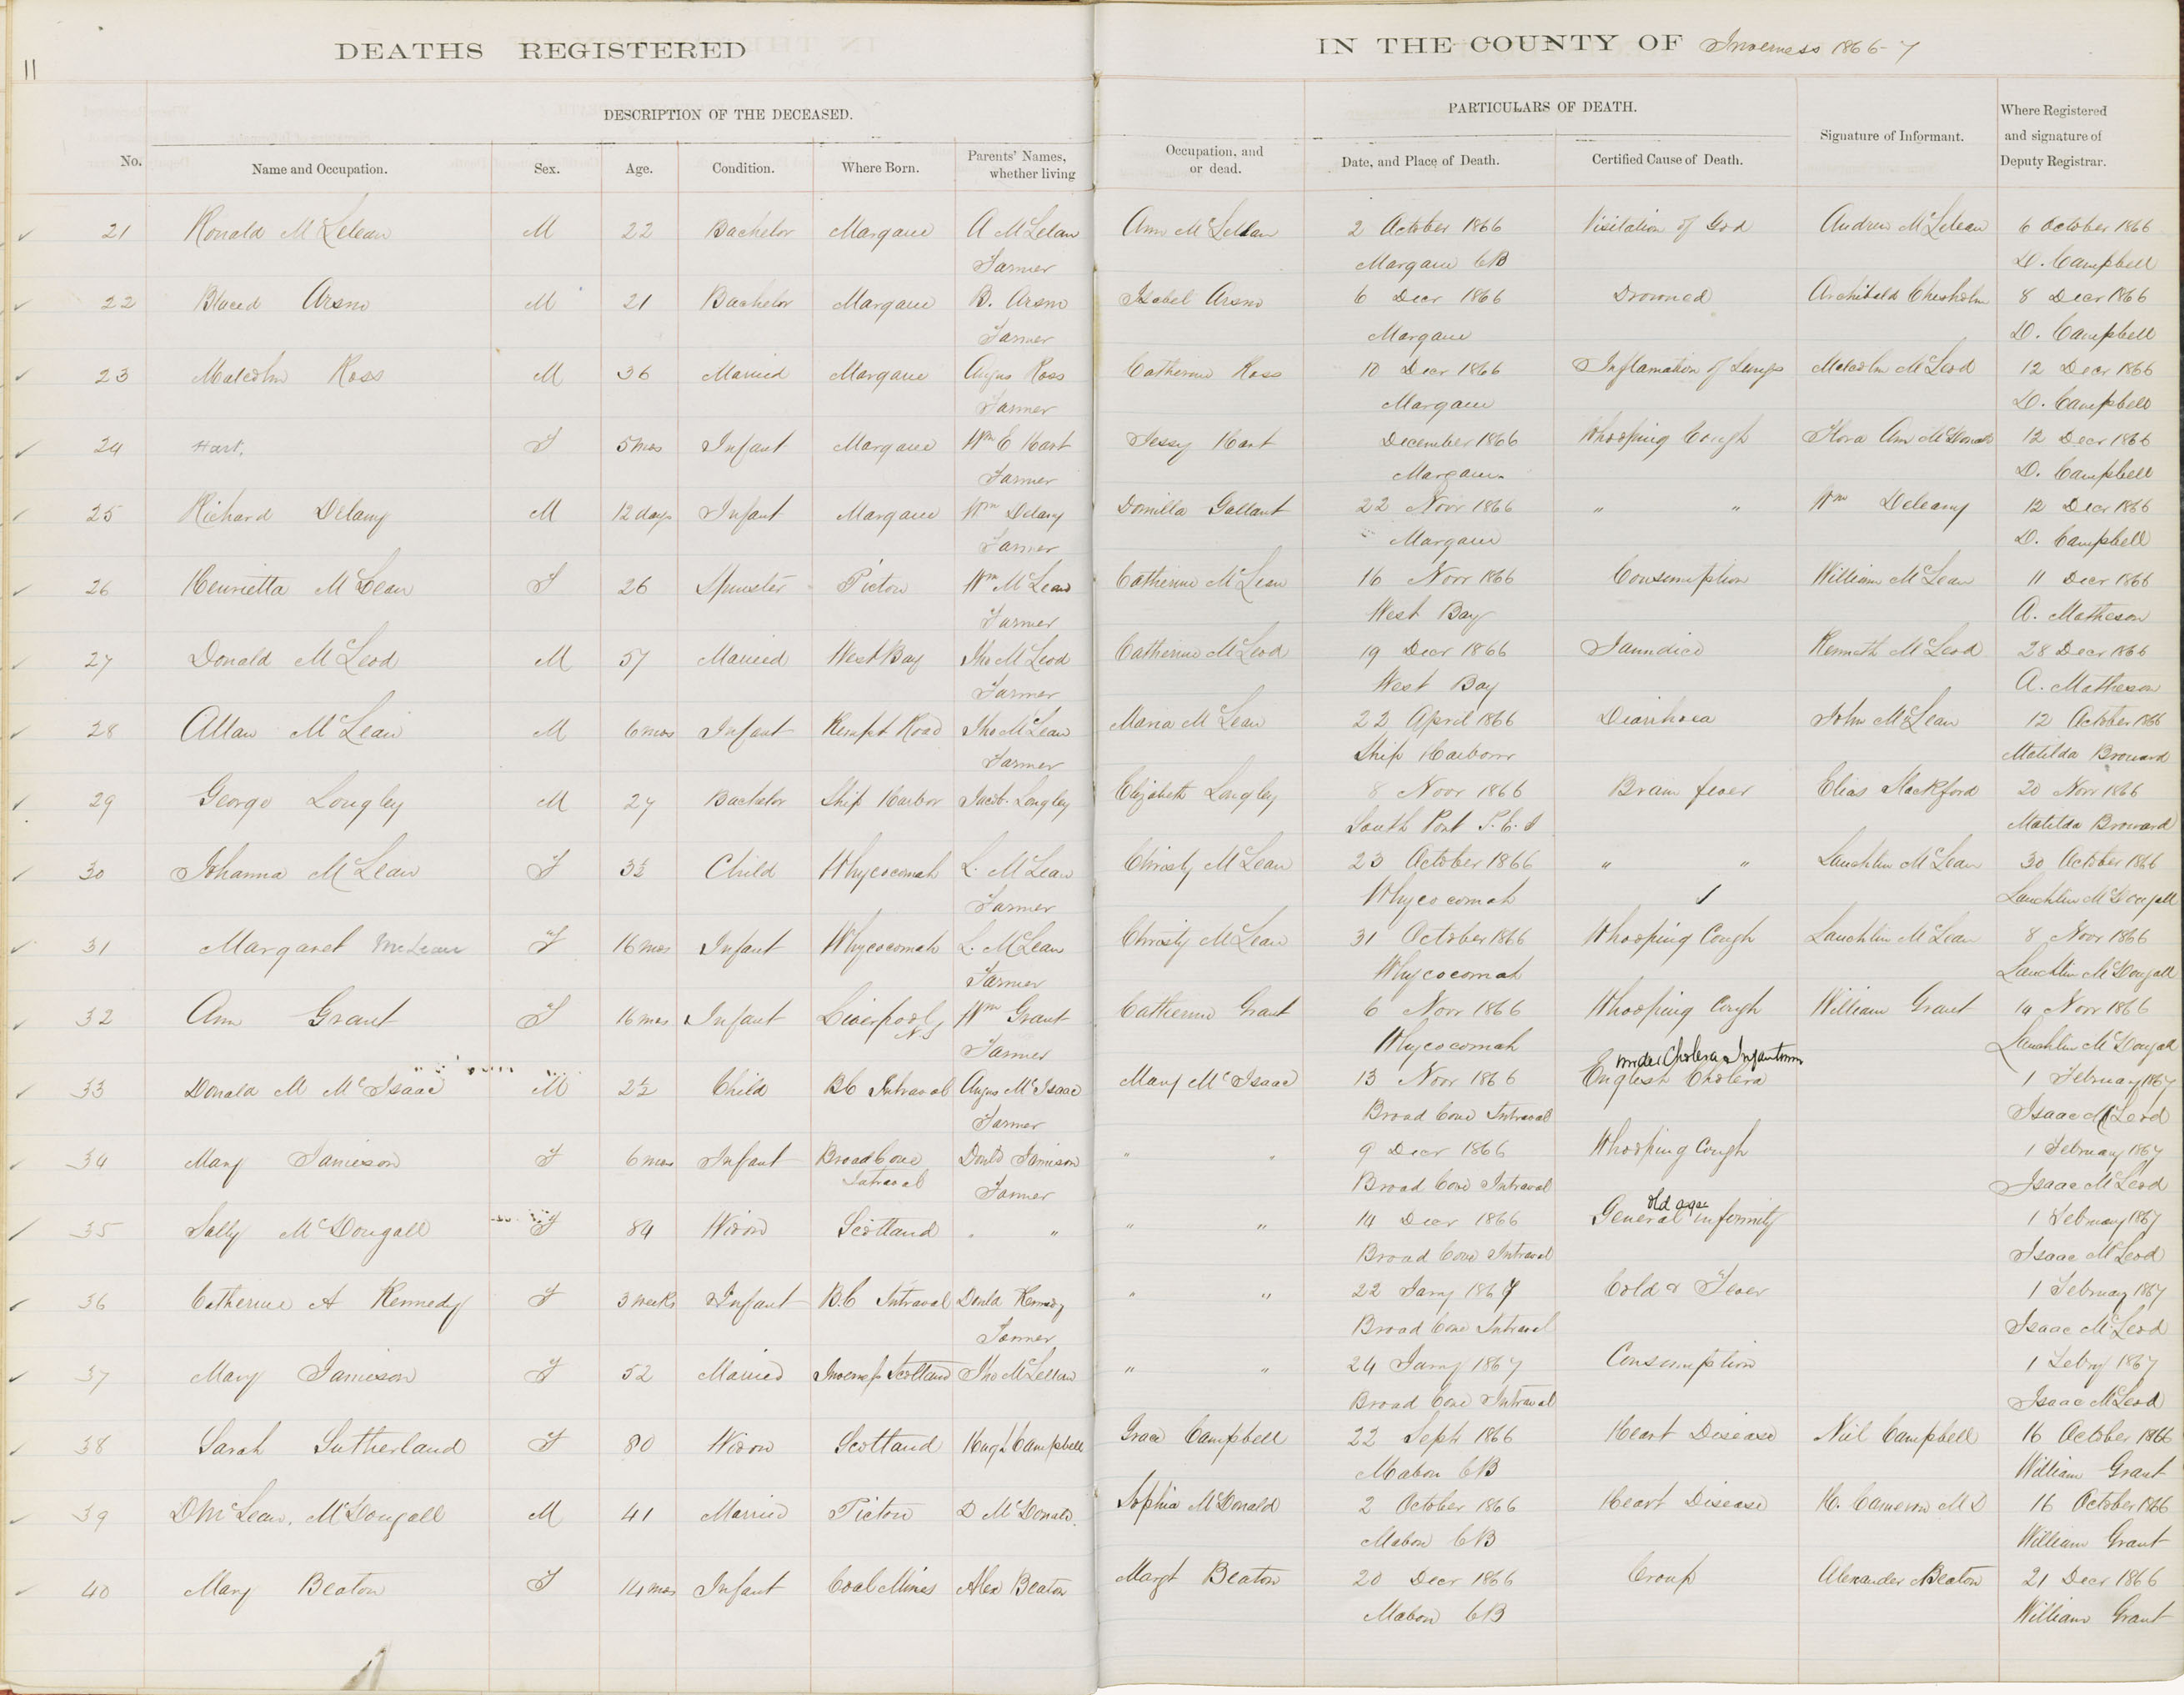 11
DEATHS REGISTERED IN THE COUNTY OF Inverness 1866-7
DESCRIPTION OF THE DECEASED. PARTICULARS OF DEATH.
No. Name and Occupation. Sex. Age. Condition. Where Born. Parents' Names, whether living Occupation, and or dead. Date, and Place of Death. Certified Cause of Death. Signature of Informant. Where Registered and signature of Deputy Registrar.
21 Ronald McLelean M 22 Bachelor Margaree A McLelan Ann McLellan 2 October 1866 Visitation of God Andrew McLelean 6 October 1866
Farmer Margaree CB D. Campbell
22 Placed Arsno M 21 Bachelor Margaree B. Arsno Isabel Arsno 6 Decr 1866 Drowned Archibald Chesholm 8 Decr 1866
Farmer Margaree D. Campbell
23 Malcolm Ross M 36 Married Margaree Angus Ross Catherine Ross 10 Decr 1866 Inflamation of Lungs Malcolm McLeod 12 Decr 1866
Farmer Margaree D. Campbell
24 Hart. F 5 mos Infant Margaree Wm E Hart Jessy Hart December 1866 Whooping Cough Flora Ann McDonald 12 Decr 1866
Farmer Margaree D. Campbell
25 Richard Delany M 12 days Infant Margaree Wm Delany Domilla Gallant 22 Novr 1866 " " Wm Deleany 12 Decr 1866
Farmer Margaree D. Campbell
26 Henrietta McLean F 26 Spinster Pictou Wm McLean Catherine McLean 16 Novr 1866 Consumption William McLean 11 Decr 1866
Farmer West Bay A. Matheson
27 Donald McLeod M 57 Married West Bay Jno McLeod Catherine McLeod 19 Decr 1866 Jaundice Kenneth McLeod 28 Decr 1866
Farmer West Bay A. Matheson
28 Allan McLean M 6 mos Infant Kempt Road Jno McLean Maria McLean 22 April 1866 Diarrhoea John McLean 12 October 1866
Farmer Ship Harbour Matilda Brouard
29 George Longley M 27 Bachelor Ship Harbor Jacob. Longley Elizabeth Longley 8 Novr 1866 Brain fever Elias Hackford 20 Novr 1866
South Port P.E.I Matilda Brouard
30 Johanna McLean F 3½ Child Whycocomah L. McLean Christy McLean 23 October 1866 " " Lauchlin McLean 30 October 1866
Farmer Whycocomah Lauchlin McDougall
31 Margaret McLean F 16 mos Infant Whycocomah L. McLean Christy McLean 31 October 1866 Whooping Cough Lauchlin McLean 8 Novr 1866
Farmer Whycocomah Lauchlin McDougall
32 Ann Grant F 16 mos Infant Liverpool N.S Wm Grant Catherine Grant 6 Novr 1866 Whooping Cough William Grant 14 Novr 1866
Farmer Whycocomah Lauchlin McDougall
under Cholera Infantum
33 Donald M McIsaac M 2½ Child BC Intraval Angus McIsaac Mary McIsaac 13 Novr 1866 English Cholera 1 February 1867
Farmer Broad Cove Intraval Isaac McLeod
34 Mary Jamieson F 6 mos Infant Broad Cove Intraval Donld Jamieson " " 9 Decr 1866 Whooping Cough 1 February 1867
Farmer Broad Cove Intraval Isaac McLeod
old age
35 Sally McDougall F 84 Widow Scotland " " " " 14 Decr 1866 General infirmity 1 February 1867
Broad Cove Intraval Isaac McLeod
36 Catherine A Kennedy F 3 weeks Infant B.C Intraval Donld Kennedy " " 22 Jany 1867 Cold & Fever 1 February 1867
Farmer Broad Cove Intraval Isaac McLeod
37 Mary Jamieson F 52 Married Inverness Scotland Jno McLellan " " 24 Jany 1867 Consumption 1 Feby 1867
Broad Cove Intraval Isaac McLeod
38 Sarah Sutherland F 80 Widow Scotland Hugh Campbell Grace Campbell 22 Septr 1866 Heart Disease Neil Campbell 16 October 1866
Mabou CB William Grant
39 D McLean. McDougall M 41 Married Pictou D McDonald. Sophia McDonald 2 October 1866 Heart Disease H. Cameron MD 16 October 1866
Mabou CB William Grant
40 Mary Beaton F 14 mos Infant Coal Mines Alex Beaton Margt Beaton 20 Decr 1866 Croup Alexander Beaton 21 Decr 1866
Mabou CB William Grant